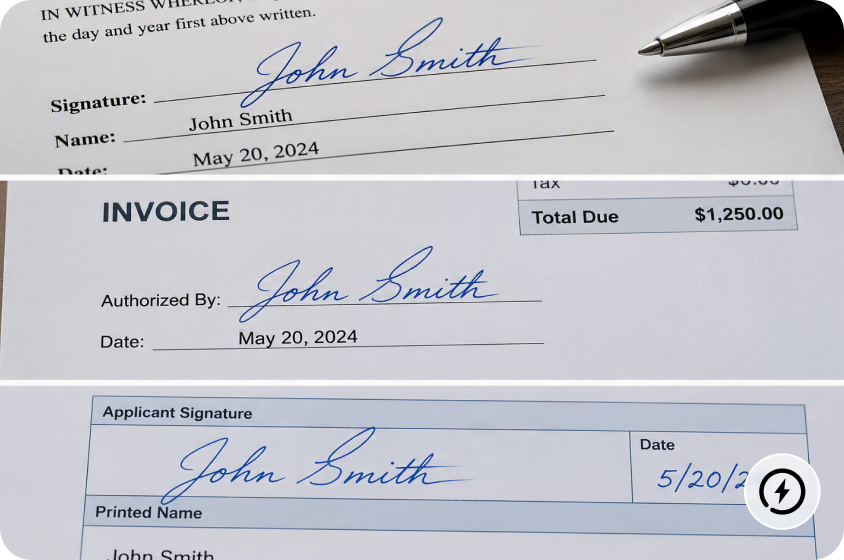 IN WITNESS WHEREOF,
the day and year first above written.
Signature: John Smith
Name: John Smith
Date: May 20, 2024
INVOICE
Tax $0.00
Total Due $1,250.00
Authorized By: John Smith
Date: May 20, 2024
Applicant Signature
John Smith
Date
5/20/2
Printed Name
John Smith